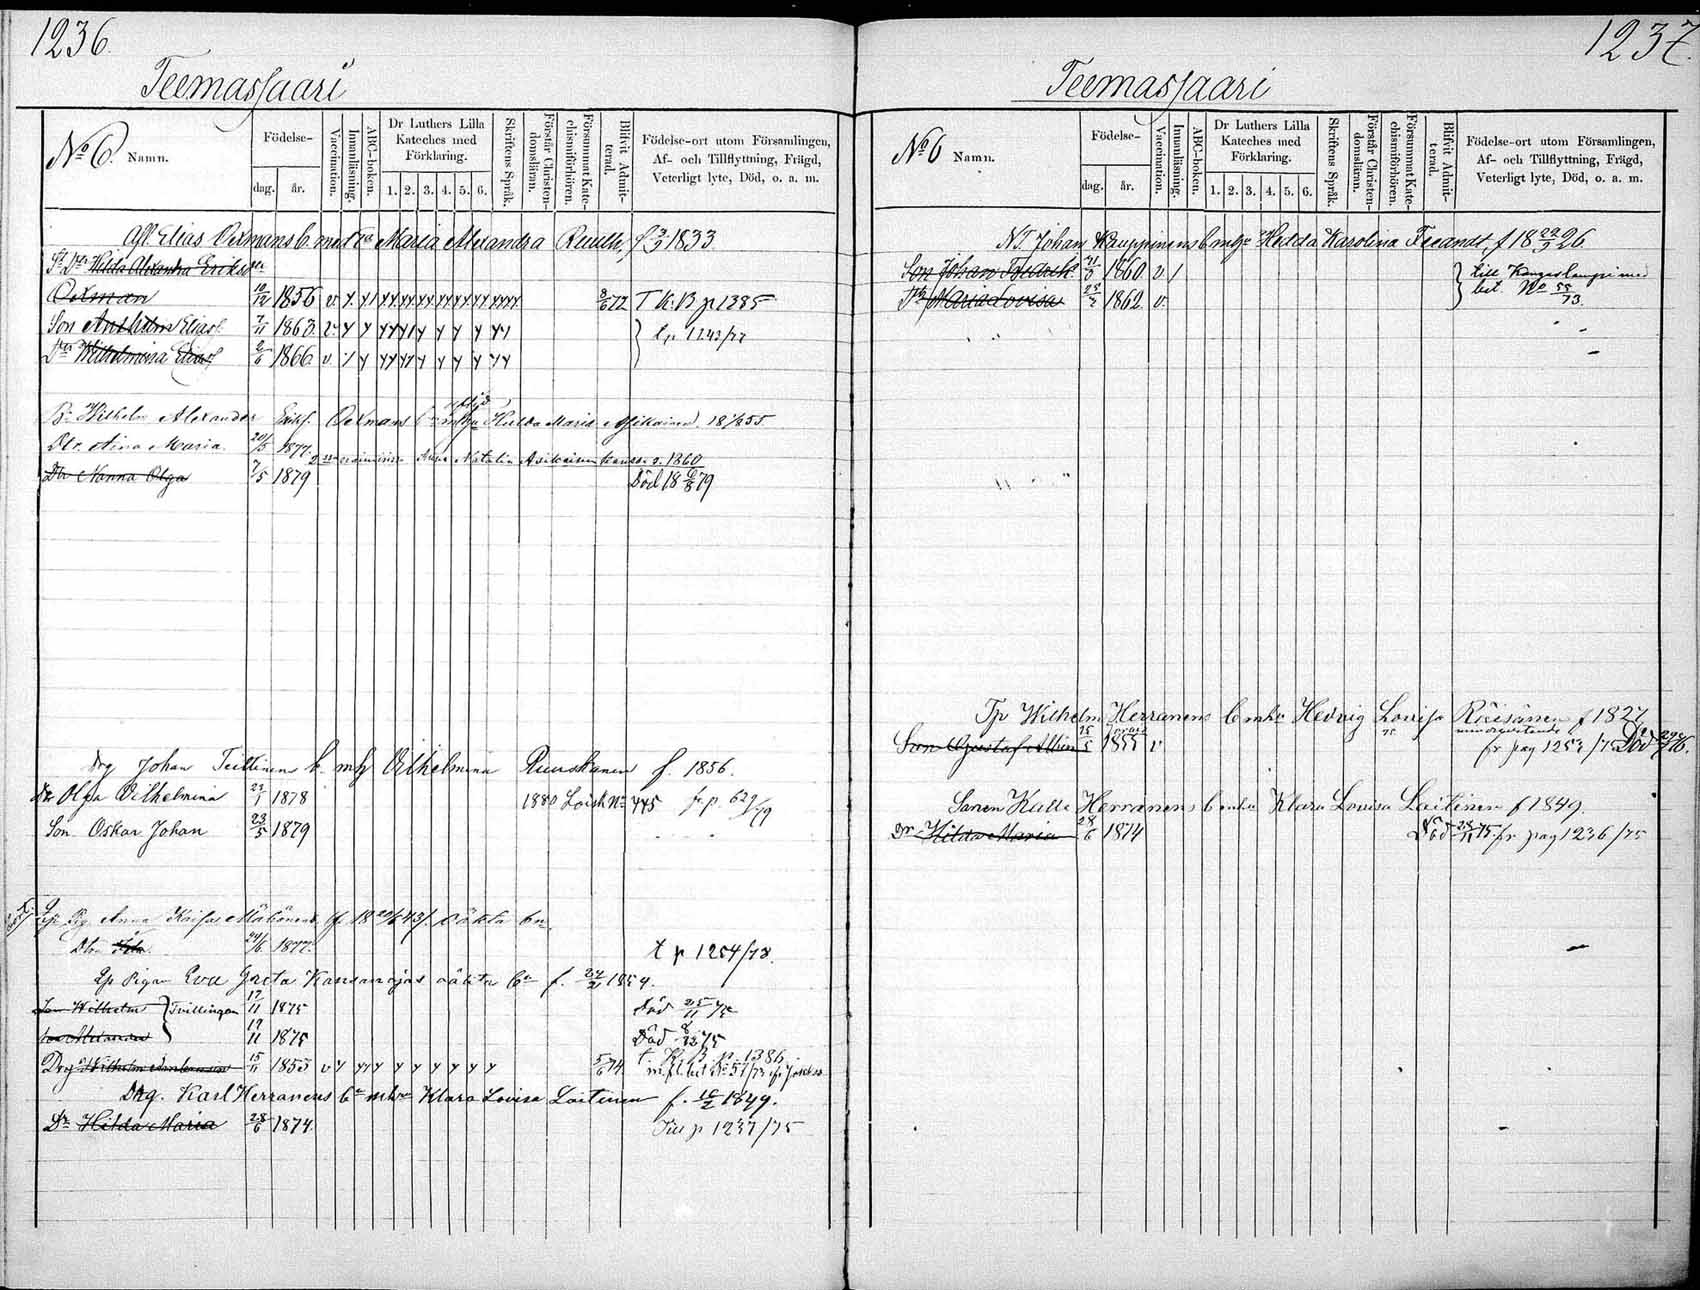 1236.
Teemassaari
No 6. Namn.
Födelse-
dag. år.
Vaccination.
Innanläsning.
ABC-boken.
Dr Luthers Lilla Kateches med Förklaring.
1. 2. 3. 4. 5. 6.
Skriftens Språk.
Förstår Christendomsläran.
Försummat Katechismiförhören.
Blifvit Admitterad.
Födelse-ort utom Församlingen, Af- och Tillflyttning, Frägd, Veterligt lyte, Död, o. a. m.
Elias Oxmans b. med Maria Alexandra Ruuth, f. 3/3 1833
Hilda Alexandra Eriks
Oxman 10/12 1856 v. 8/6 72 T K.B p 1385
Son Anshelm Elias 7/11 1863 v
Dtr Wilhelmina 2/6 1866 v. t p 1143/77
Wilhelm Alexander Eriksf. Oxmans Hulda Maria Asikainen 1855
Dtr. Aina Maria 20/5 1877.
Anna Natalia Asikainen kanssa s. 1860
Dtr Nanna Olga 7/5 1879 Död 18 6/8 79
Drg Johan Teittinens b. mhj Vilhelmina Ruuskanen f. 1856.
Dtr Olga Vilhelmina 23/1 1878 1880 No 445 fr. p. 629/79
Son Oskar Johan 23/5 1879
Anna
Dtr 24/6 1877. t p 1254/78.
Lp Pigan Eva Greta Kansanajas oäkta bn f. 1854.
Son Wilhelm } Tvillingar 17/11 1875 Död 25/11 75
Son Alexander 17/11 1875 Död 8/12 75
Drg Wilhelm 15/11 1855 v 5/6 74 t. K. B. p. 1386
Drg. Karl Herranens bn mhu Klara Lovisa Laitinen f. 1849.
Dr Hilda Maria 28/6 1874 Till p 1237/75
1237.
Teemassaari
No 6 Namn.
Födelse-
dag. år.
Vaccination.
Innanläsning.
ABC-boken.
Dr Luthers Lilla Kateches med Förklaring.
1. 2. 3. 4. 5. 6.
Skriftens Språk.
Förstår Christendomsläran.
Försummat Katechismiförhören.
Blifvit Admitterad.
Födelse-ort utom Församlingen, Af- och Tillflyttning, Frägd, Veterligt lyte, Död, o. a. m.
Johan Kauppinens b mhu Hedda Karolina Feeandt, f 18 22/7 26
Son Johan Fredrik 1860 v / } till Kangaslampi med
Maria Lovisa 1862 v. bet. No 55/73.
Tp Wilhelm Herranens b mhu Hedvig Lovisa Räisänen f 1827
Son Gustaf Albin 15/5 1855 v fr pag 1253/75 Död
Sonen Kalle Herranens b mhu Klara Lovisa Laitinen f 1849.
Hilda Maria 28/6 1874 Död 28/11 75. fr pag 1236/75